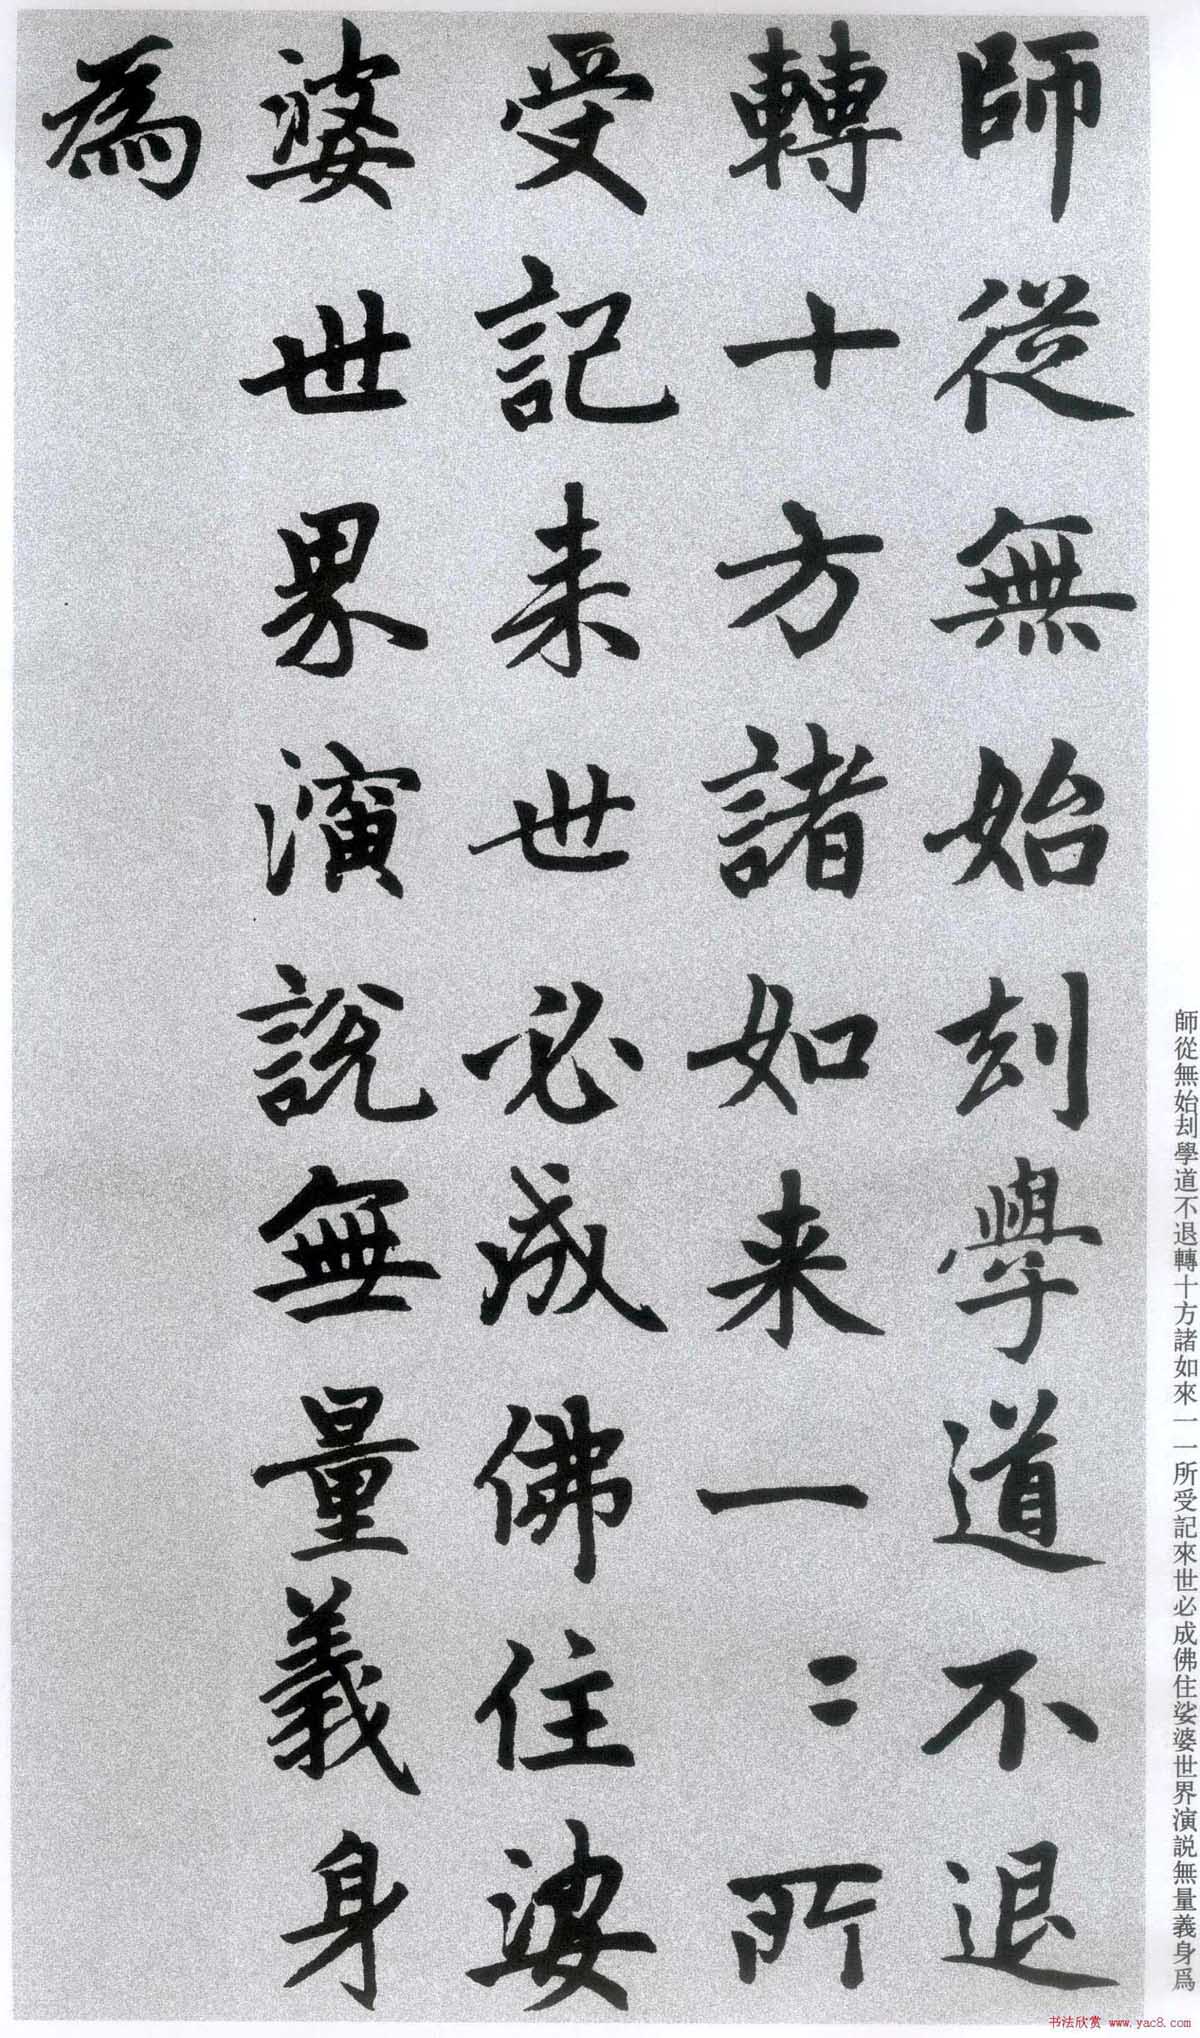 師從無始刦學道不退
轉十方諸如来一〻所
受記来世必成佛住娑
婆世界演說無量義身
為
師從無始刦學道不退轉十方諸如來一一所受記來世必成佛住娑婆世界演説無量義身爲
书法欣赏 www.yac8.com